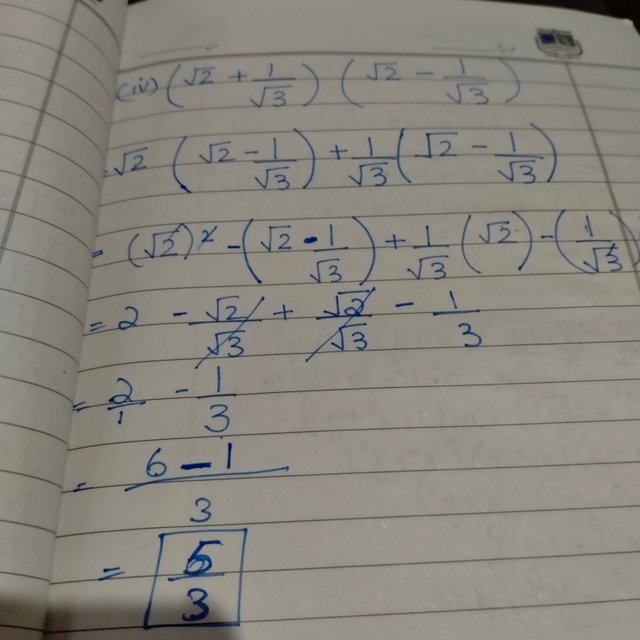 (iv) (√2 + 1/√3) (√2 - 1/√3)
= √2 (√2 - 1/√3) + 1/√3 (√2 - 1/√3)
= (√2)² - (√2 · 1/√3) + 1/√3 (√2) - (1/√3)
= 2 - √2/√3 + √2/√3 - 1/3
= 2/1 - 1/3
= 6 - 1/3
= 5/3